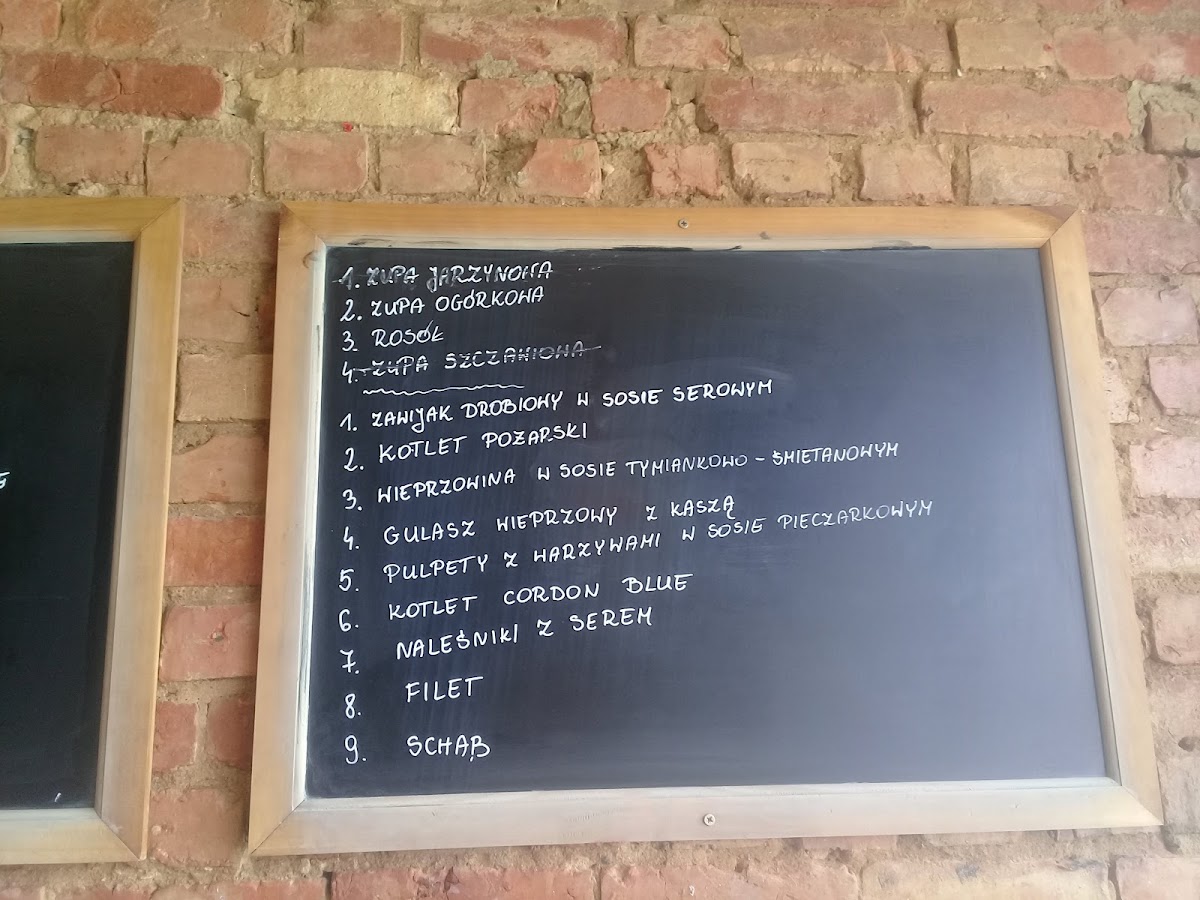 1. ZUPA JARZYNOWA
2. ZUPA OGÓRKOWA
3. ROSÓŁ
4. ZUPA SZCZAWIOWA
1. ZAWIJAK DROBIOWY W SOSIE SEROWYM
2. KOTLET POŻARSKI
3. WIEPRZOWINA W SOSIE TYMIANKOWO - ŚMIETANOWYM
4. GULASZ WIEPRZOWY Z KASZĄ
5. PULPETY Z WARZYWAMI W SOSIE PIECZARKOWYM
6. KOTLET CORDON BLUE
7. NALEŚNIKI Z SEREM
8. FILET
9. SCHAB